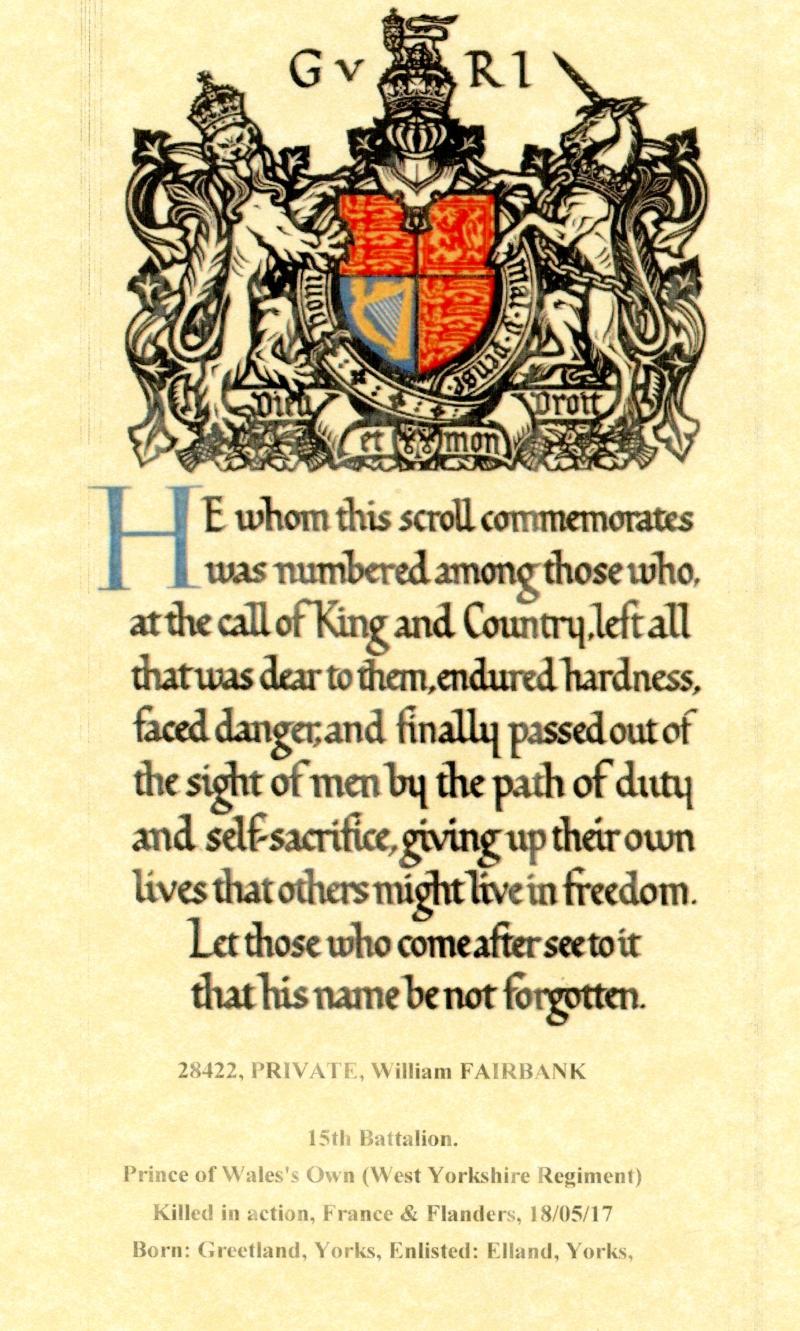 G V R I
honi
mal·y·pense
Dieu et mon Droit
HE whom this scroll commemorates
was numbered among those who,
at the call of King and Country, left all
that was dear to them, endured hardness,
faced danger, and finally passed out of
the sight of men by the path of duty
and self-sacrifice, giving up their own
lives that others might live in freedom.
Let those who come after see to it
that his name be not forgotten.
28422, PRIVATE, William FAIRBANK
15th Battalion.
Prince of Wales's Own (West Yorkshire Regiment)
Killed in action, France & Flanders, 18/05/17
Born: Greetland, Yorks, Enlisted: Elland, Yorks,